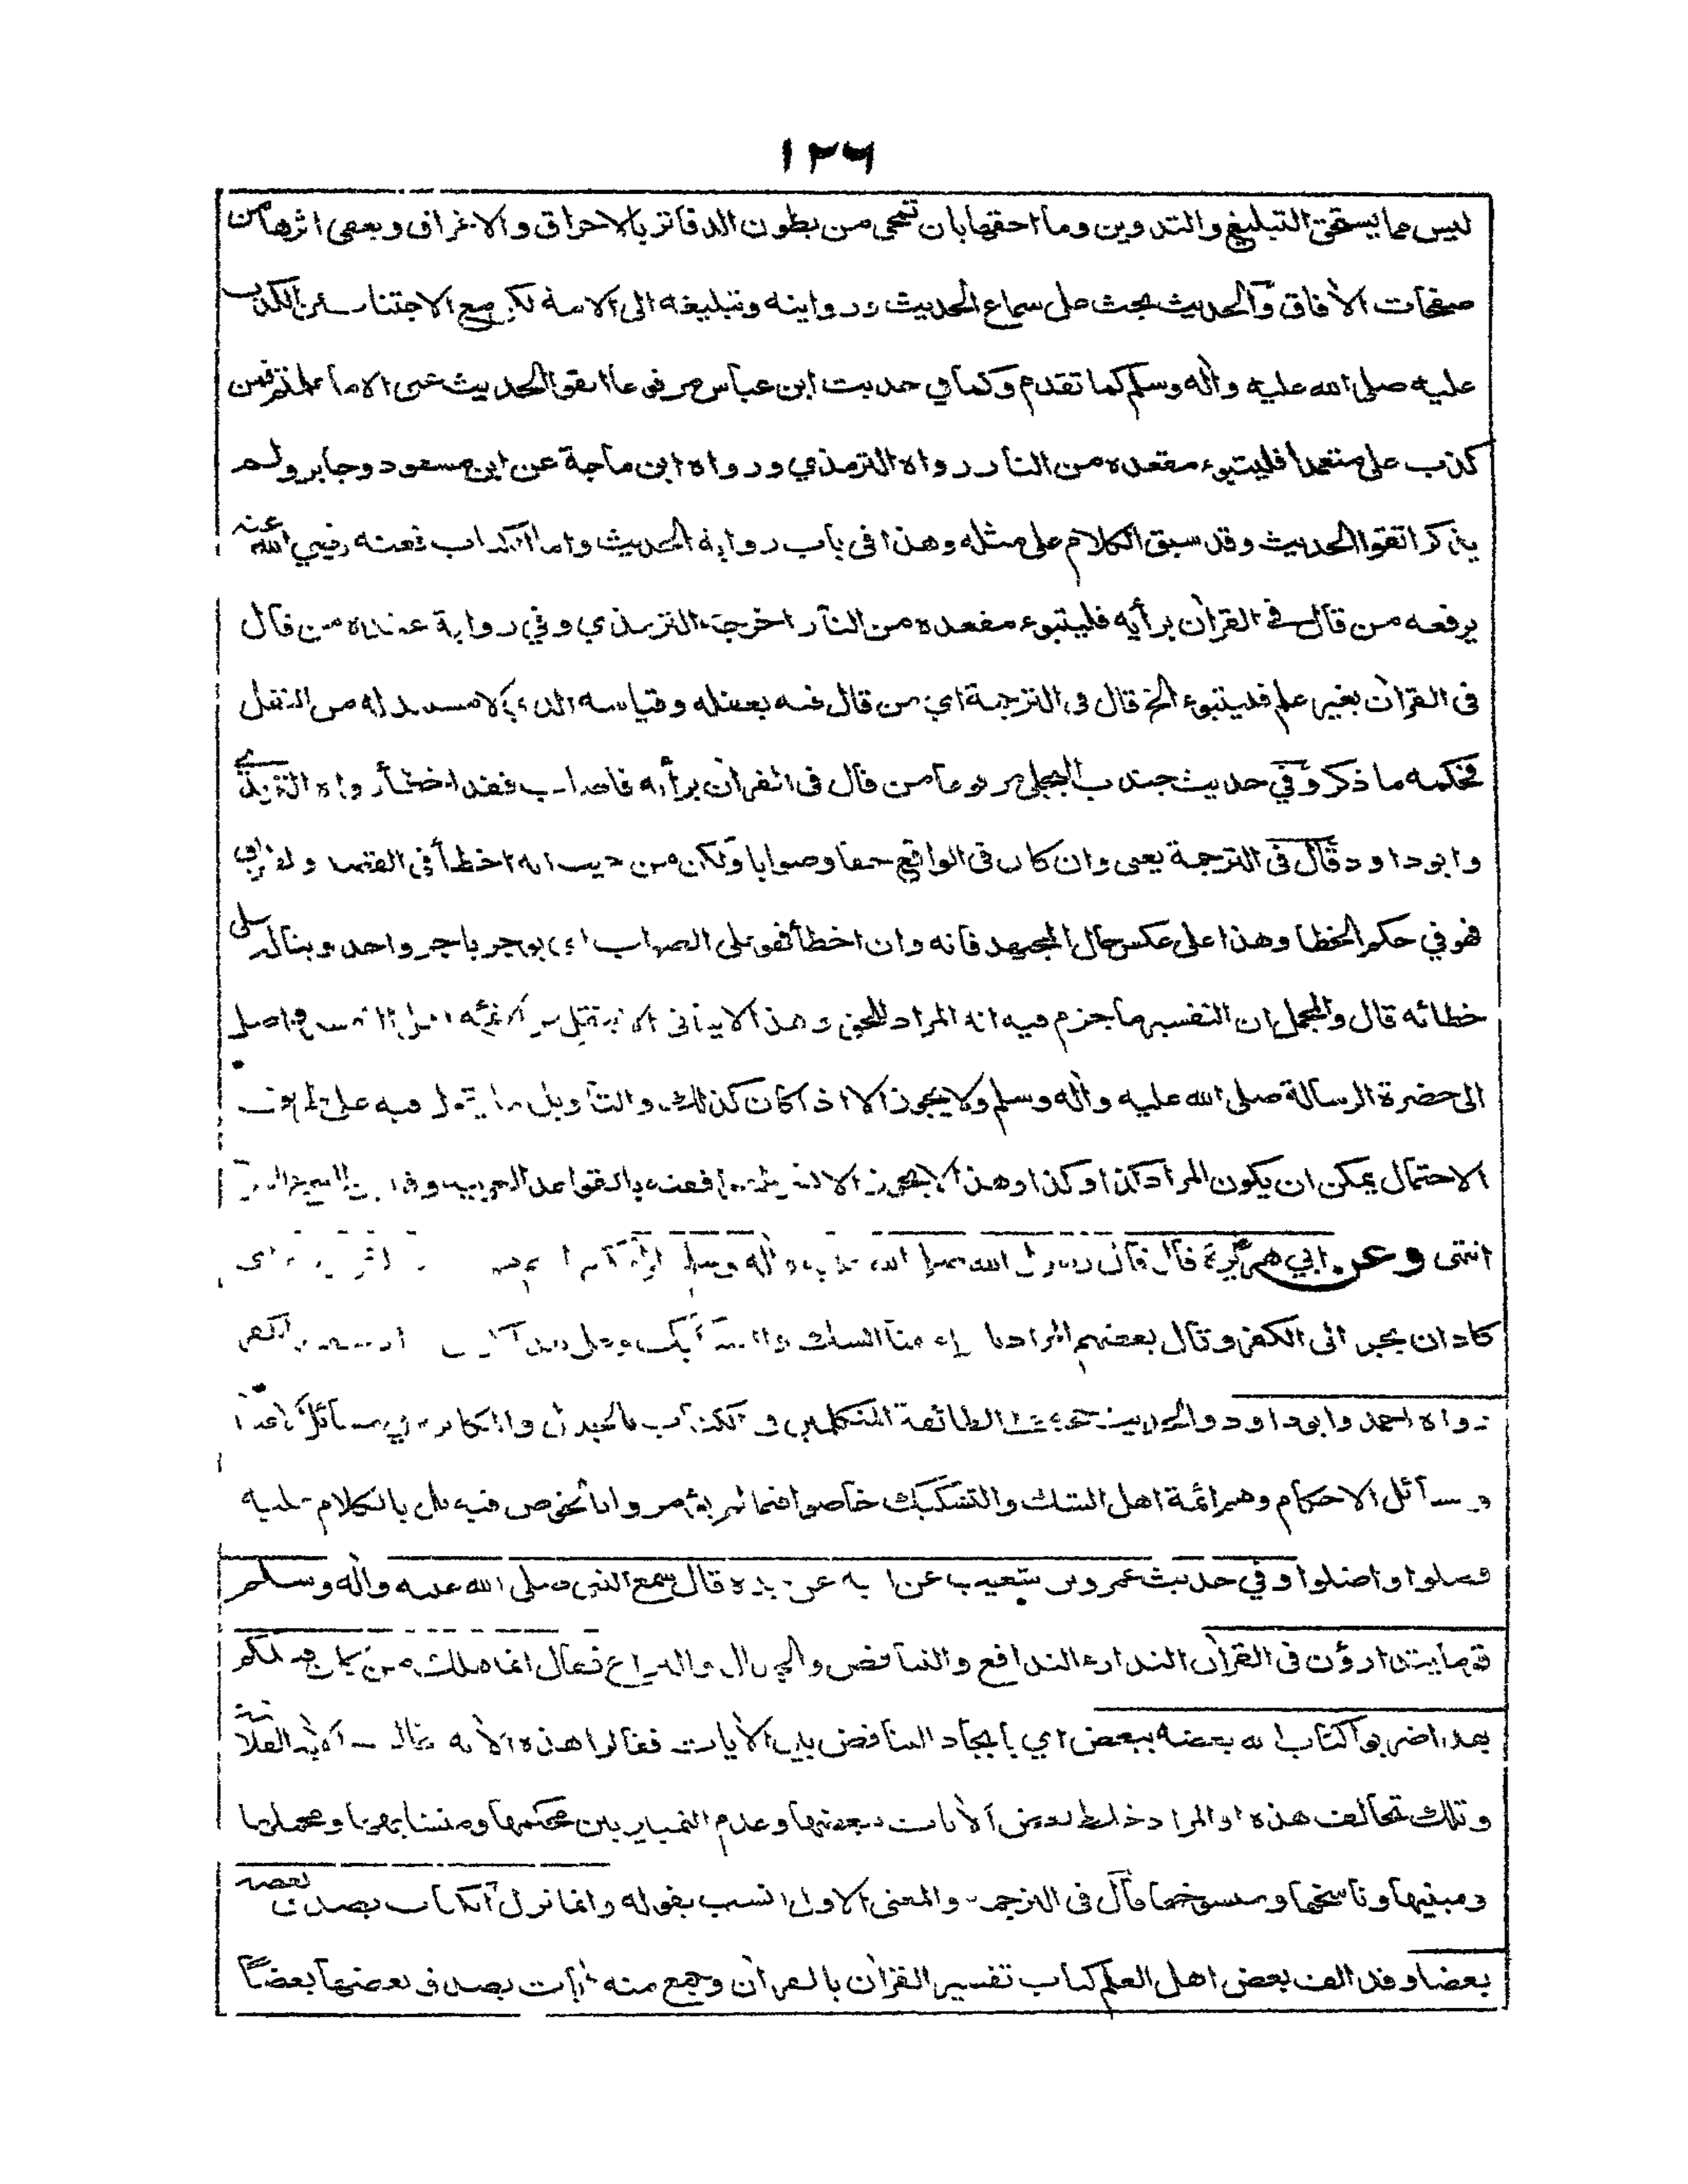 ١٢٦
ليس مما يستحق التبليغ والتدوين وما احقها بان تمحى من بطون الدفاتر بالاحراق والاغراق ويعفى اثرها من
صفحات الآفاق والحديث يحث على سماع الحديث وروايته وتبليغه الى الامة لكن مع الاجتناب عن الكذب
عليه صلى الله عليه وآله وسلم كما تقدم وكما في حديث ابن عباس مرفوعا اتقوا الحديث عنى الا ما علمتم فمن
كذب على متعمدا فليتبوء مقعده من النار رواه الترمذي ورواه ابن ماجة عن ابن مسعود وجابر ولم
يذكر اتقوا الحديث وقد سبق الكلام على مثله وهذا فى باب رواية الحديث واما الكتاب فعنه رضي الله عنه
يرفعه من قال في القرآن برأيه فليتبوء مقعده من النار اخرجه الترمذي وفي رواية عنده من قال
فى القرآن بغير علم فليتبوء الخ قال فى الترجمة اي من قال فيه بعقله وقياسه الذي لا مسند له من النقل
فحكمه ما ذكر وفي حديث جندب البجلي مرفوعا من قال فى القرآن برأيه فاصاب فقد اخطأ رواه الترمذي
وابوداود قال فى الترجمة يعنى وان كان فى الواقع حقا وصوابا ولكن من حيث انه اخطأ في القصد
فهو في حكم الخطا وهذا على عكس حال المجتهد فانه وان اخطأ فهو على الصواب اي يوجر باجر واحد ويثاب على
خطائه قال والمجمل ان التفسير ما جزم فيه انه المراد للحق وهذا لا يتأتى الا بنقل من
الى حضرة الرسالة صلى الله عليه وآله وسلم ولا يجوز الا اذا كان كذلك والتأويل ما يقول فيه على طريق
الاحتمال يمكن ان يكون المراد كذا وكذا وهذا لا يجوز الا بالقواعد العربية
انتهى وعن ابي هريرة قال قال رسول الله صلى الله عليه وآله وسلم المراء
كاد ان يجر الى الكفر وقال بعضهم المراد بالمراء هنا الشك
رواه احمد وابوداود والحديث الطائفة المتكلمين فى الكتاب بالجدل والمكابرة في مسائل
ومسائل الاحكام وهم ائمة اهل الشك والتشكيك خاضوا فيما لم يؤمروا بالخوض فيه بل بالكلام عليه
فضلوا واضلوا وفي حديث عمرو بن شعيب عن ابيه عن جده قال سمع النبي صلى الله عليه وآله وسلم
قوما يتدارؤن فى القرآن التدارء التدافع والتناقض والجدال والنزاع فقال انما هلك من كان قبلكم
بهذا ضربوا كتاب الله بعضه ببعض اي بايجاد التناقض بين الآيات فقالوا هذه الآية تخالف الآية الفلانية
وتلك تخالف هذه او المراد خلط بعض الآيات ببعضها وعدم التمييز بين محكمها ومتشابهها ومجملها
ومبينها وناسخها ومنسوخها قال فى الترجمة والمعنى الاول انسب بقوله وانما نزل الكتاب يصدق بعضه
بعضا وقد الف بعض اهل العلم كتاب تفسير القرآن بالقرآن وجمع منه آيات يصدق بعضها بعضا